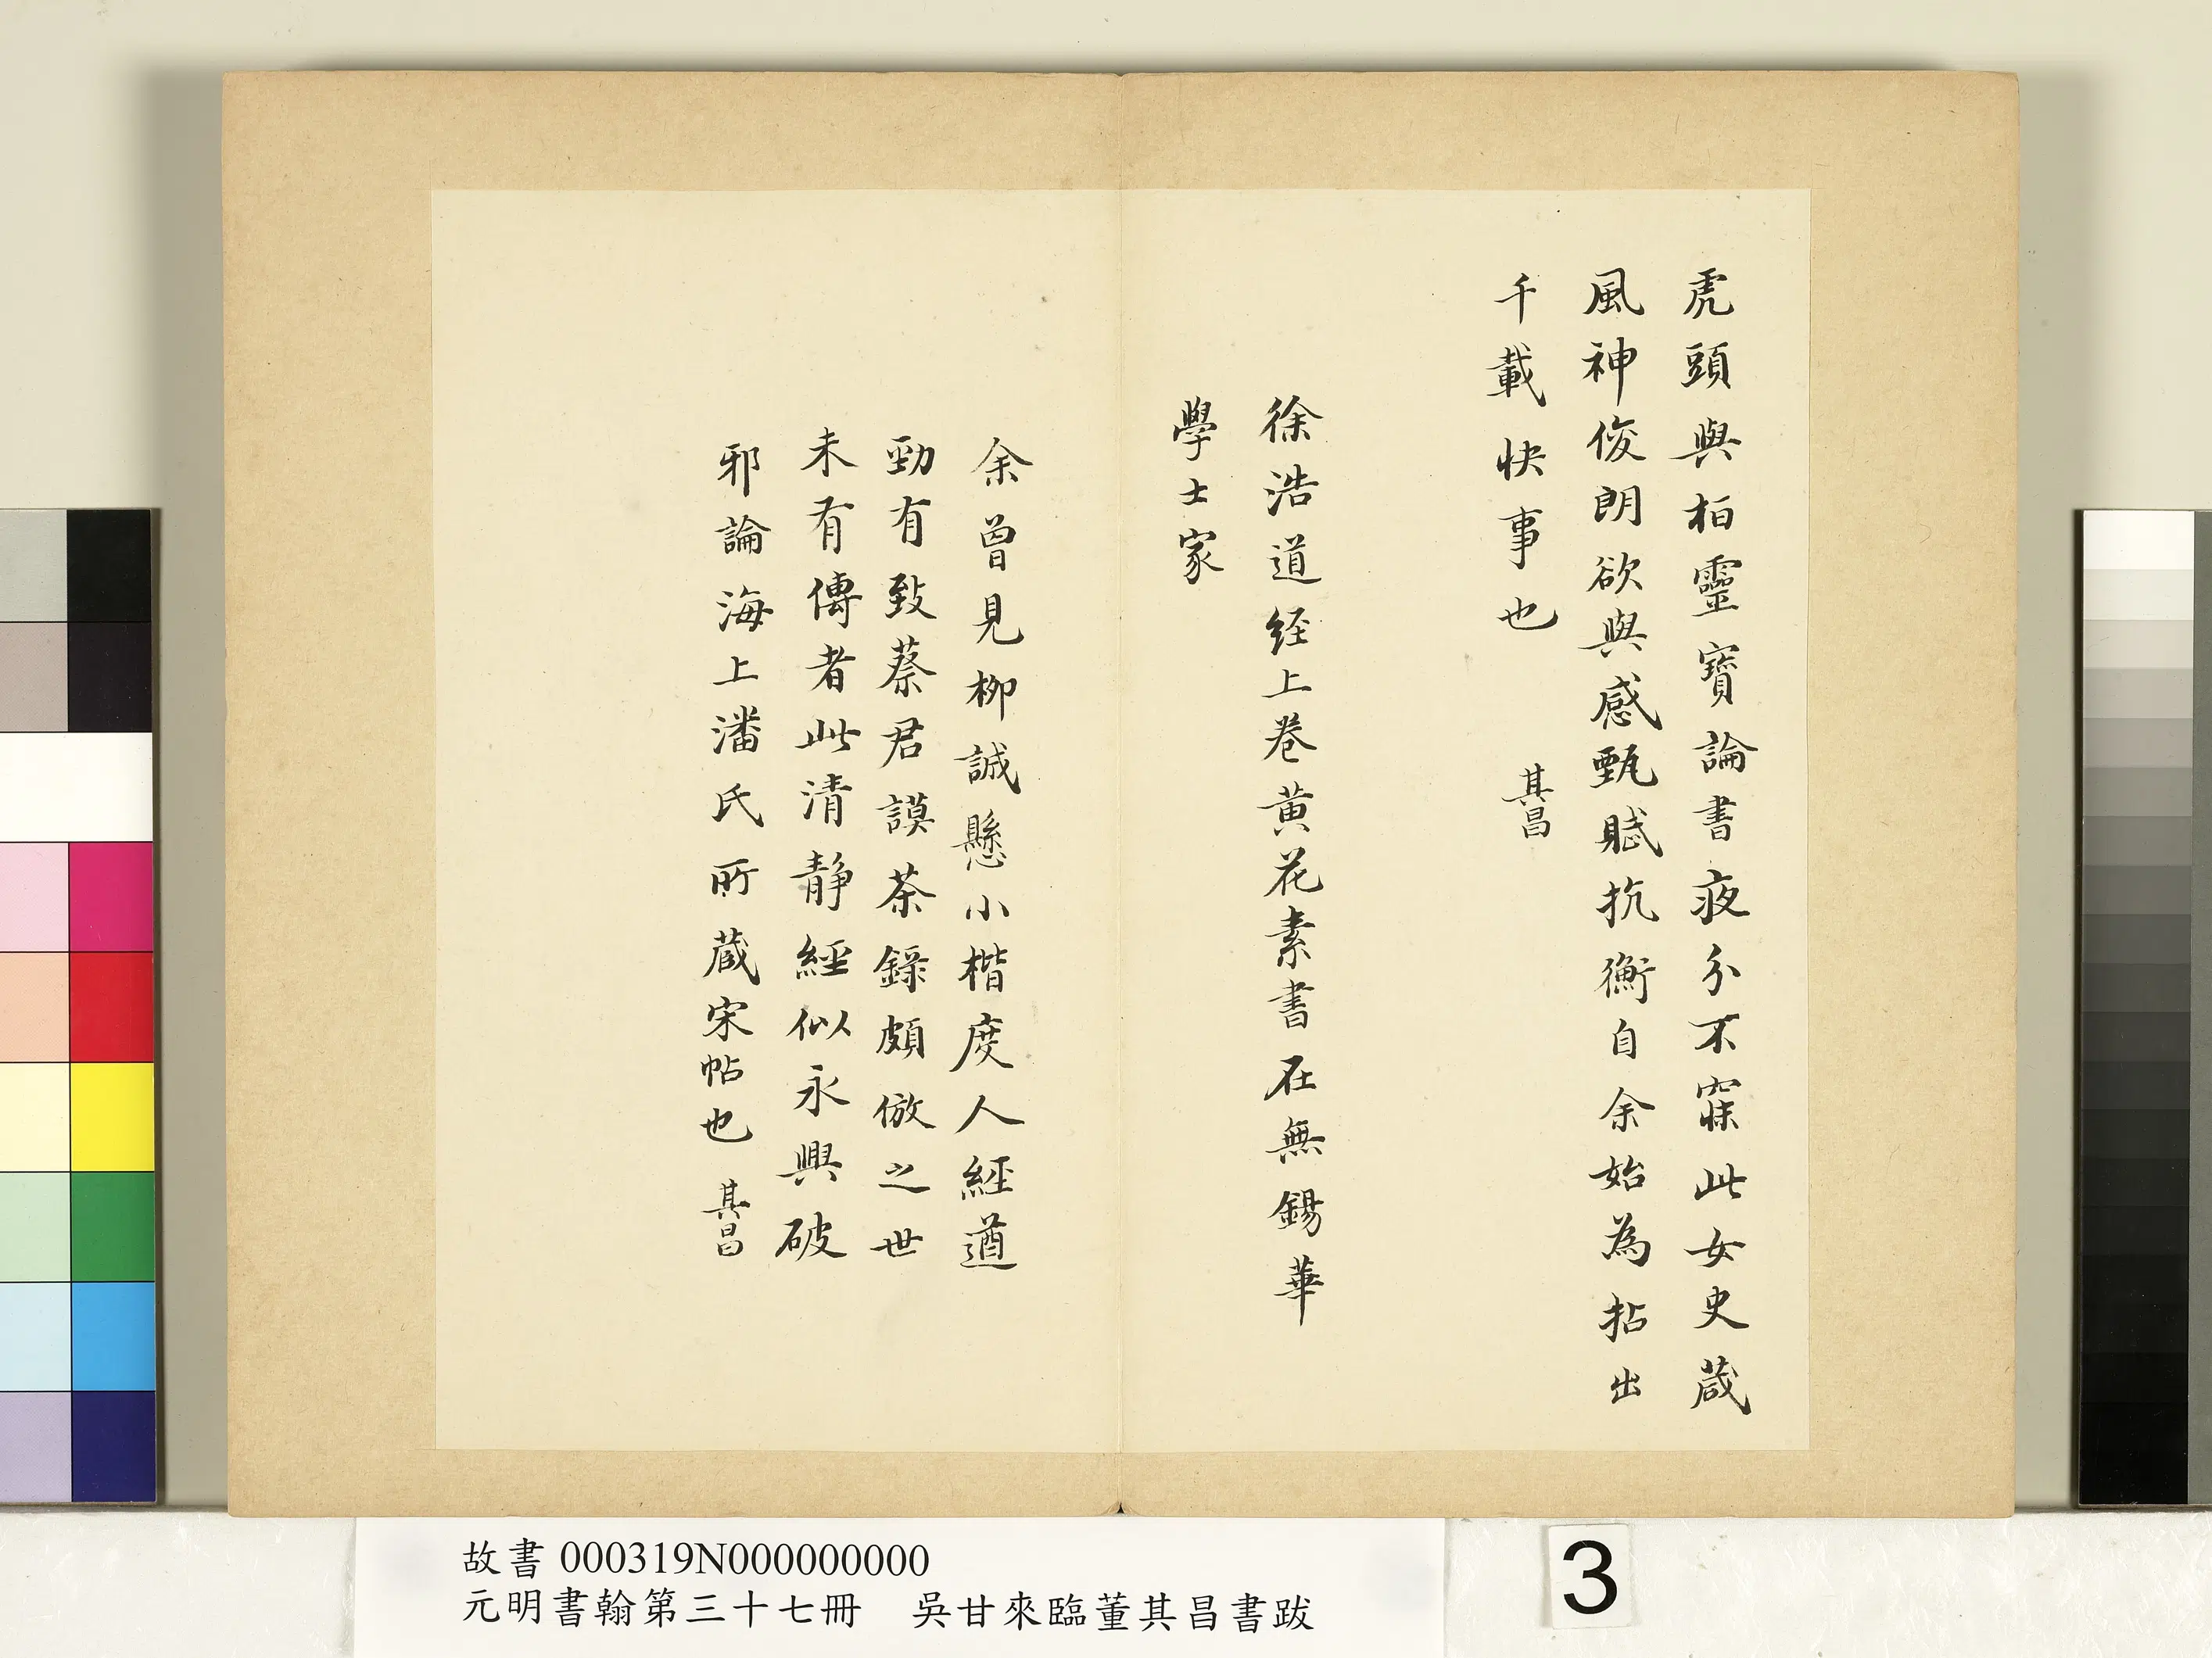 虎頭與柏靈寶論書夜分不寐此女史葴
風神俊朗欲與感甄賦抗衡自余始為拈出
千載快事也　其昌
徐浩道经上卷黄花素書在無錫華
學士家
余曾見柳誠懸小楷度人經遒
勁有致蔡君謨茶錄頗倣之世
未有傳者此清静經似永興破
邪論海上潘氏所蔵宋帖也　其昌
故書 000319N000000000
元明書翰第三十七冊　吳甘來臨董其昌書跋
3